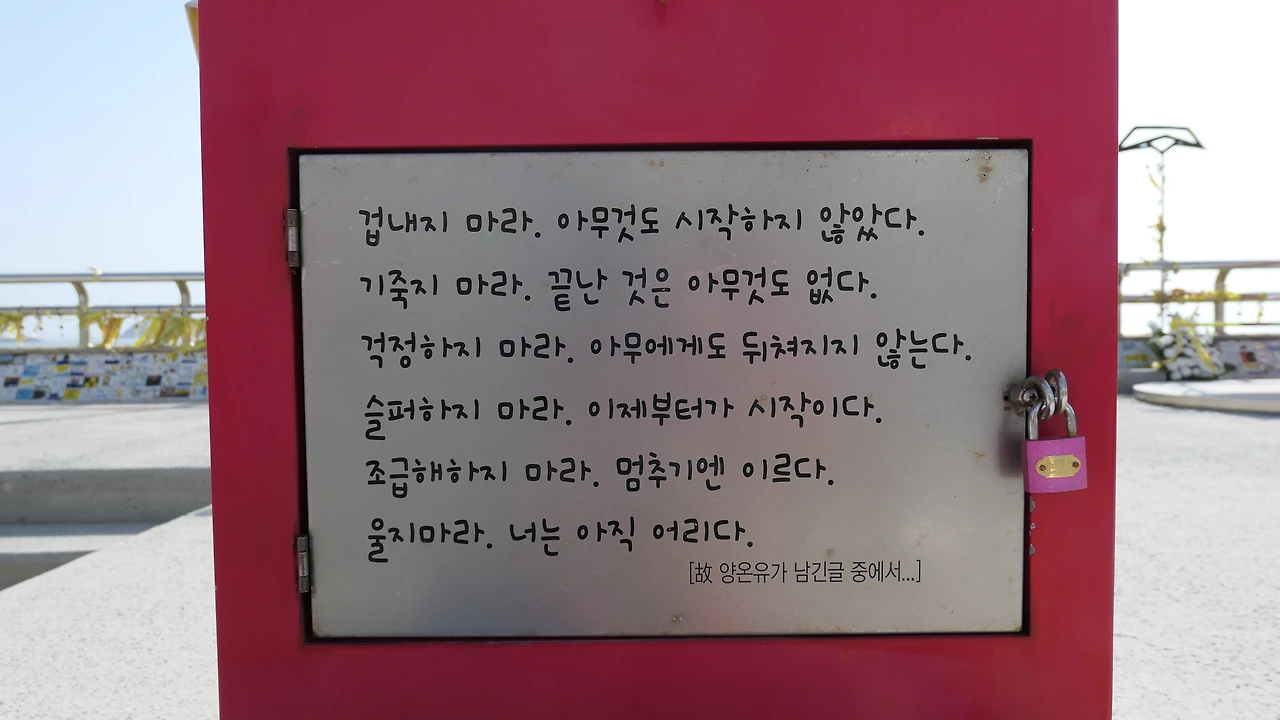 겁내지 마라. 아무것도 시작하지 않았다.
기죽지 마라. 끝난 것은 아무것도 없다.
걱정하지 마라. 아무에게도 뒤쳐지지 않는다.
슬퍼하지 마라. 이제부터가 시작이다.
조급해하지 마라. 멈추기엔 이르다.
울지마라. 너는 아직 어리다.
[故 양온유가 남긴글 중에서...]